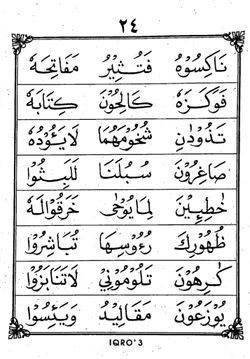 ٢٤
نَاكِسُوْهُ فَتُثِيْرُ مَفَاتِحَهٗ
فَوَكَزَهٗ كَالِحُوْنَ كِتَابَهٗ
تَذُوْدٰنِ شُحُوْمَهُمَا لَايَؤُدُهٗ
صَاغِرُوْنَ سُبُلَنَا لَلَبِثُوْا
خٰطِـِٕيْنَ لِمَايُوْحٰى خَرَقُوْالَهٗ
ظُهُوْرِكَ رُءُوْسِهَا تُبَاشِرُوْا
كٰرِهُوْنَ تَلُوْمُوْنِيْ لَاتَنَابَزُوْا
يُوْزَعُوْنَ مَقَالِيْدُ وَيَئِسُوْا
IQRO' 3